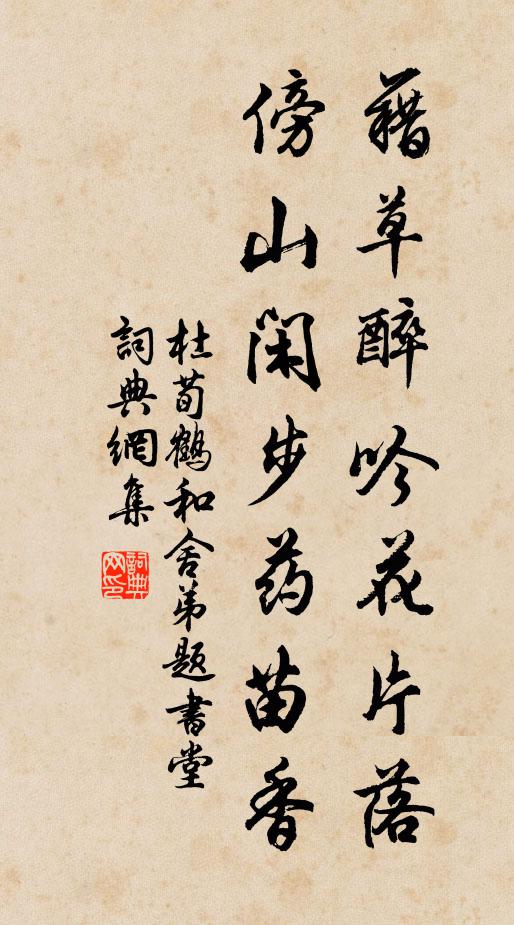 藉草醉吟花片落
傍山閑步药苗香
杜荀鶴和舍弟題書堂
詞典網集
詞典
网印